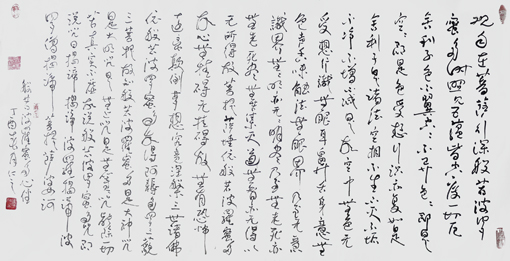 观自在菩薩行深般若波罗
蜜多时照见五蕴皆空度一切厄
舍利子色不異空空不異色色即是
空空即是色受想行识亦复如是
舍利子是诸法空相不生不灭不垢
不净不增不减是故空中無色无
受想行识無眼耳鼻舌身意無
色声香味触法無眼界乃至无意
識界無无明亦无无明尽乃至無老死亦
無老死尽無苦集灭道無智亦無得以
无所得故菩提薩埵依般若波羅蜜多
故心無挂碍无挂碍故無有恐怖
远离颠倒梦想究竟涅槃三世諸佛
依般若波罗蜜多故得阿耨多罗三藐
三菩提故知般若波罗蜜多是大神咒
是大明咒是无上咒是無等等咒能除一切
苦真实不虚故说般若波罗蜜多咒即
说咒曰揭谛揭谛波罗揭谛波
罗僧揭谛菩提薩婆诃
般若波羅蜜多心经
丁酉